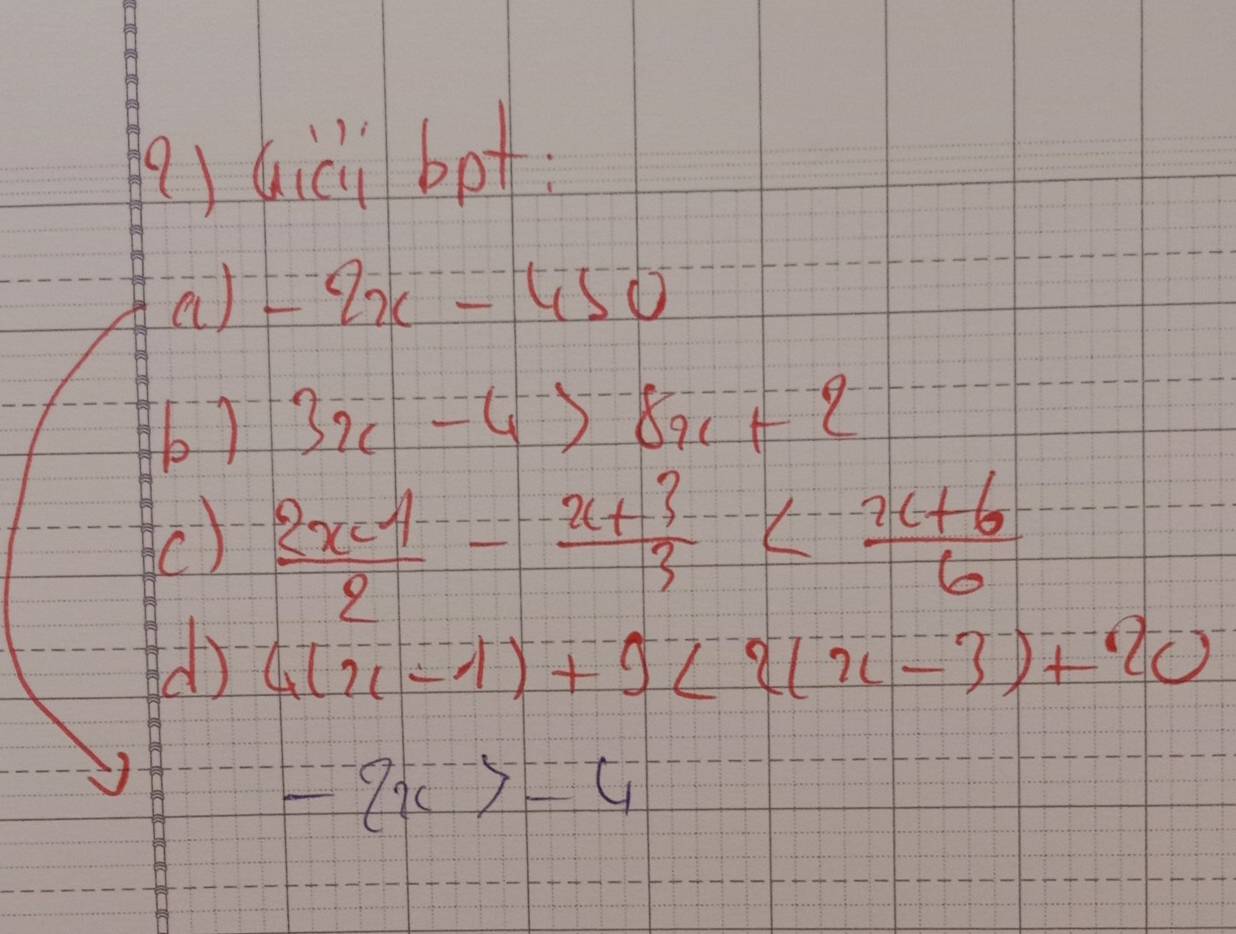 2) Giải bpt:
a) - 2x - 4 ≤ 0
b) 3x - 4 > 8x + 2
c) \frac{2x-1}{2} - \frac{x+3}{3} < \frac{x+6}{6}
d) 4(x - 1) + 9 < 2(x - 3) + 20
- 2x > - 4